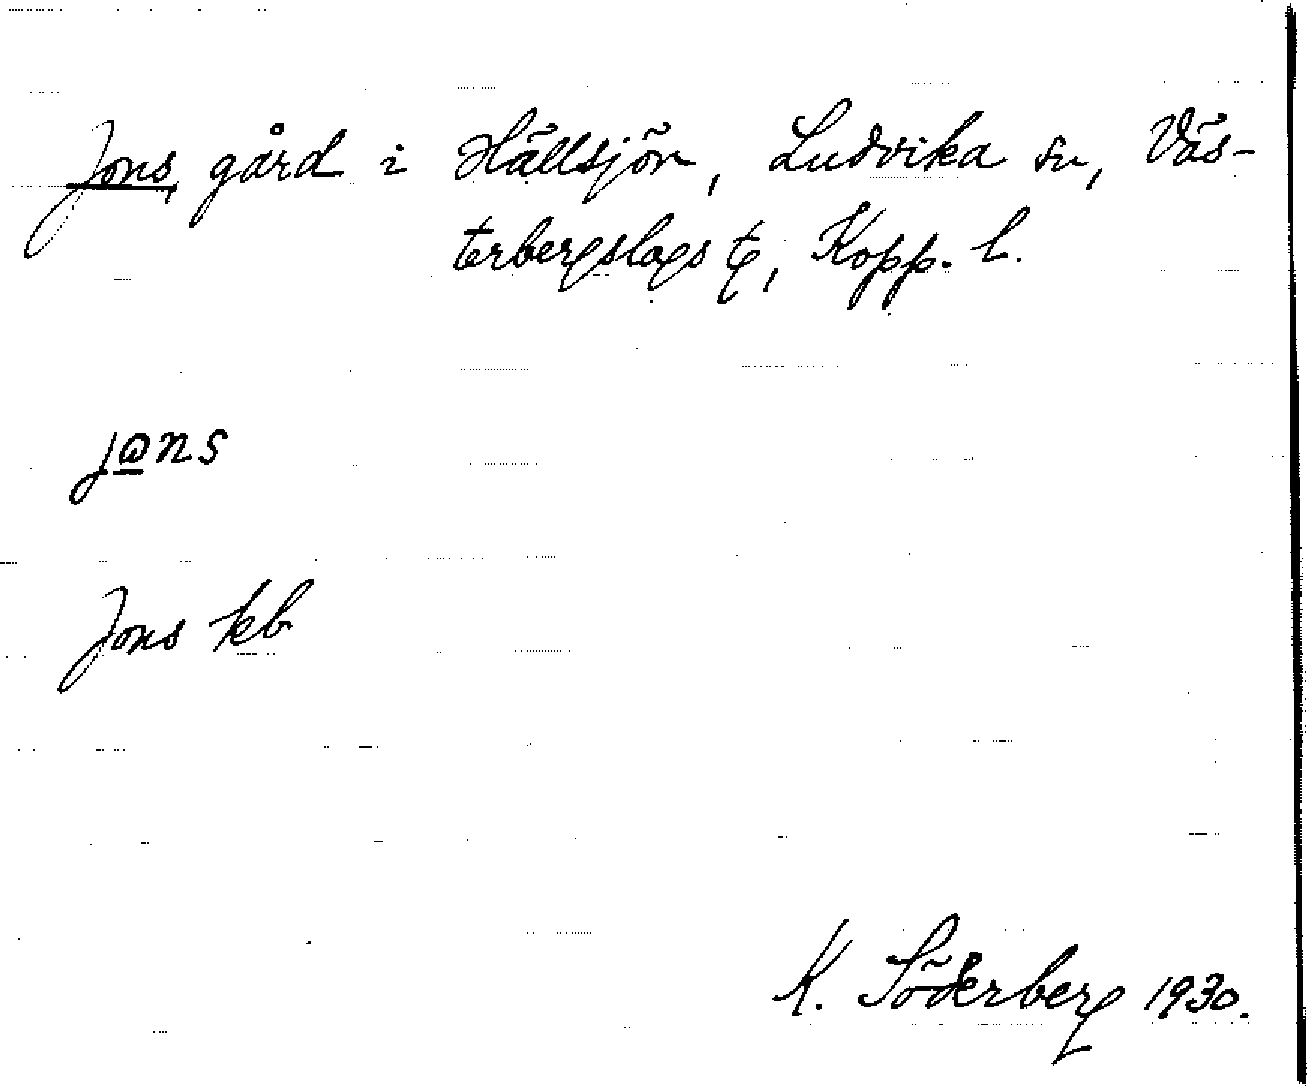 Jons, gård i Hällsjön, Ludvika sn, Väs-
terbergslags tg, Kopp. l.
jωns
Jons kb
K. Söderberg 1930.